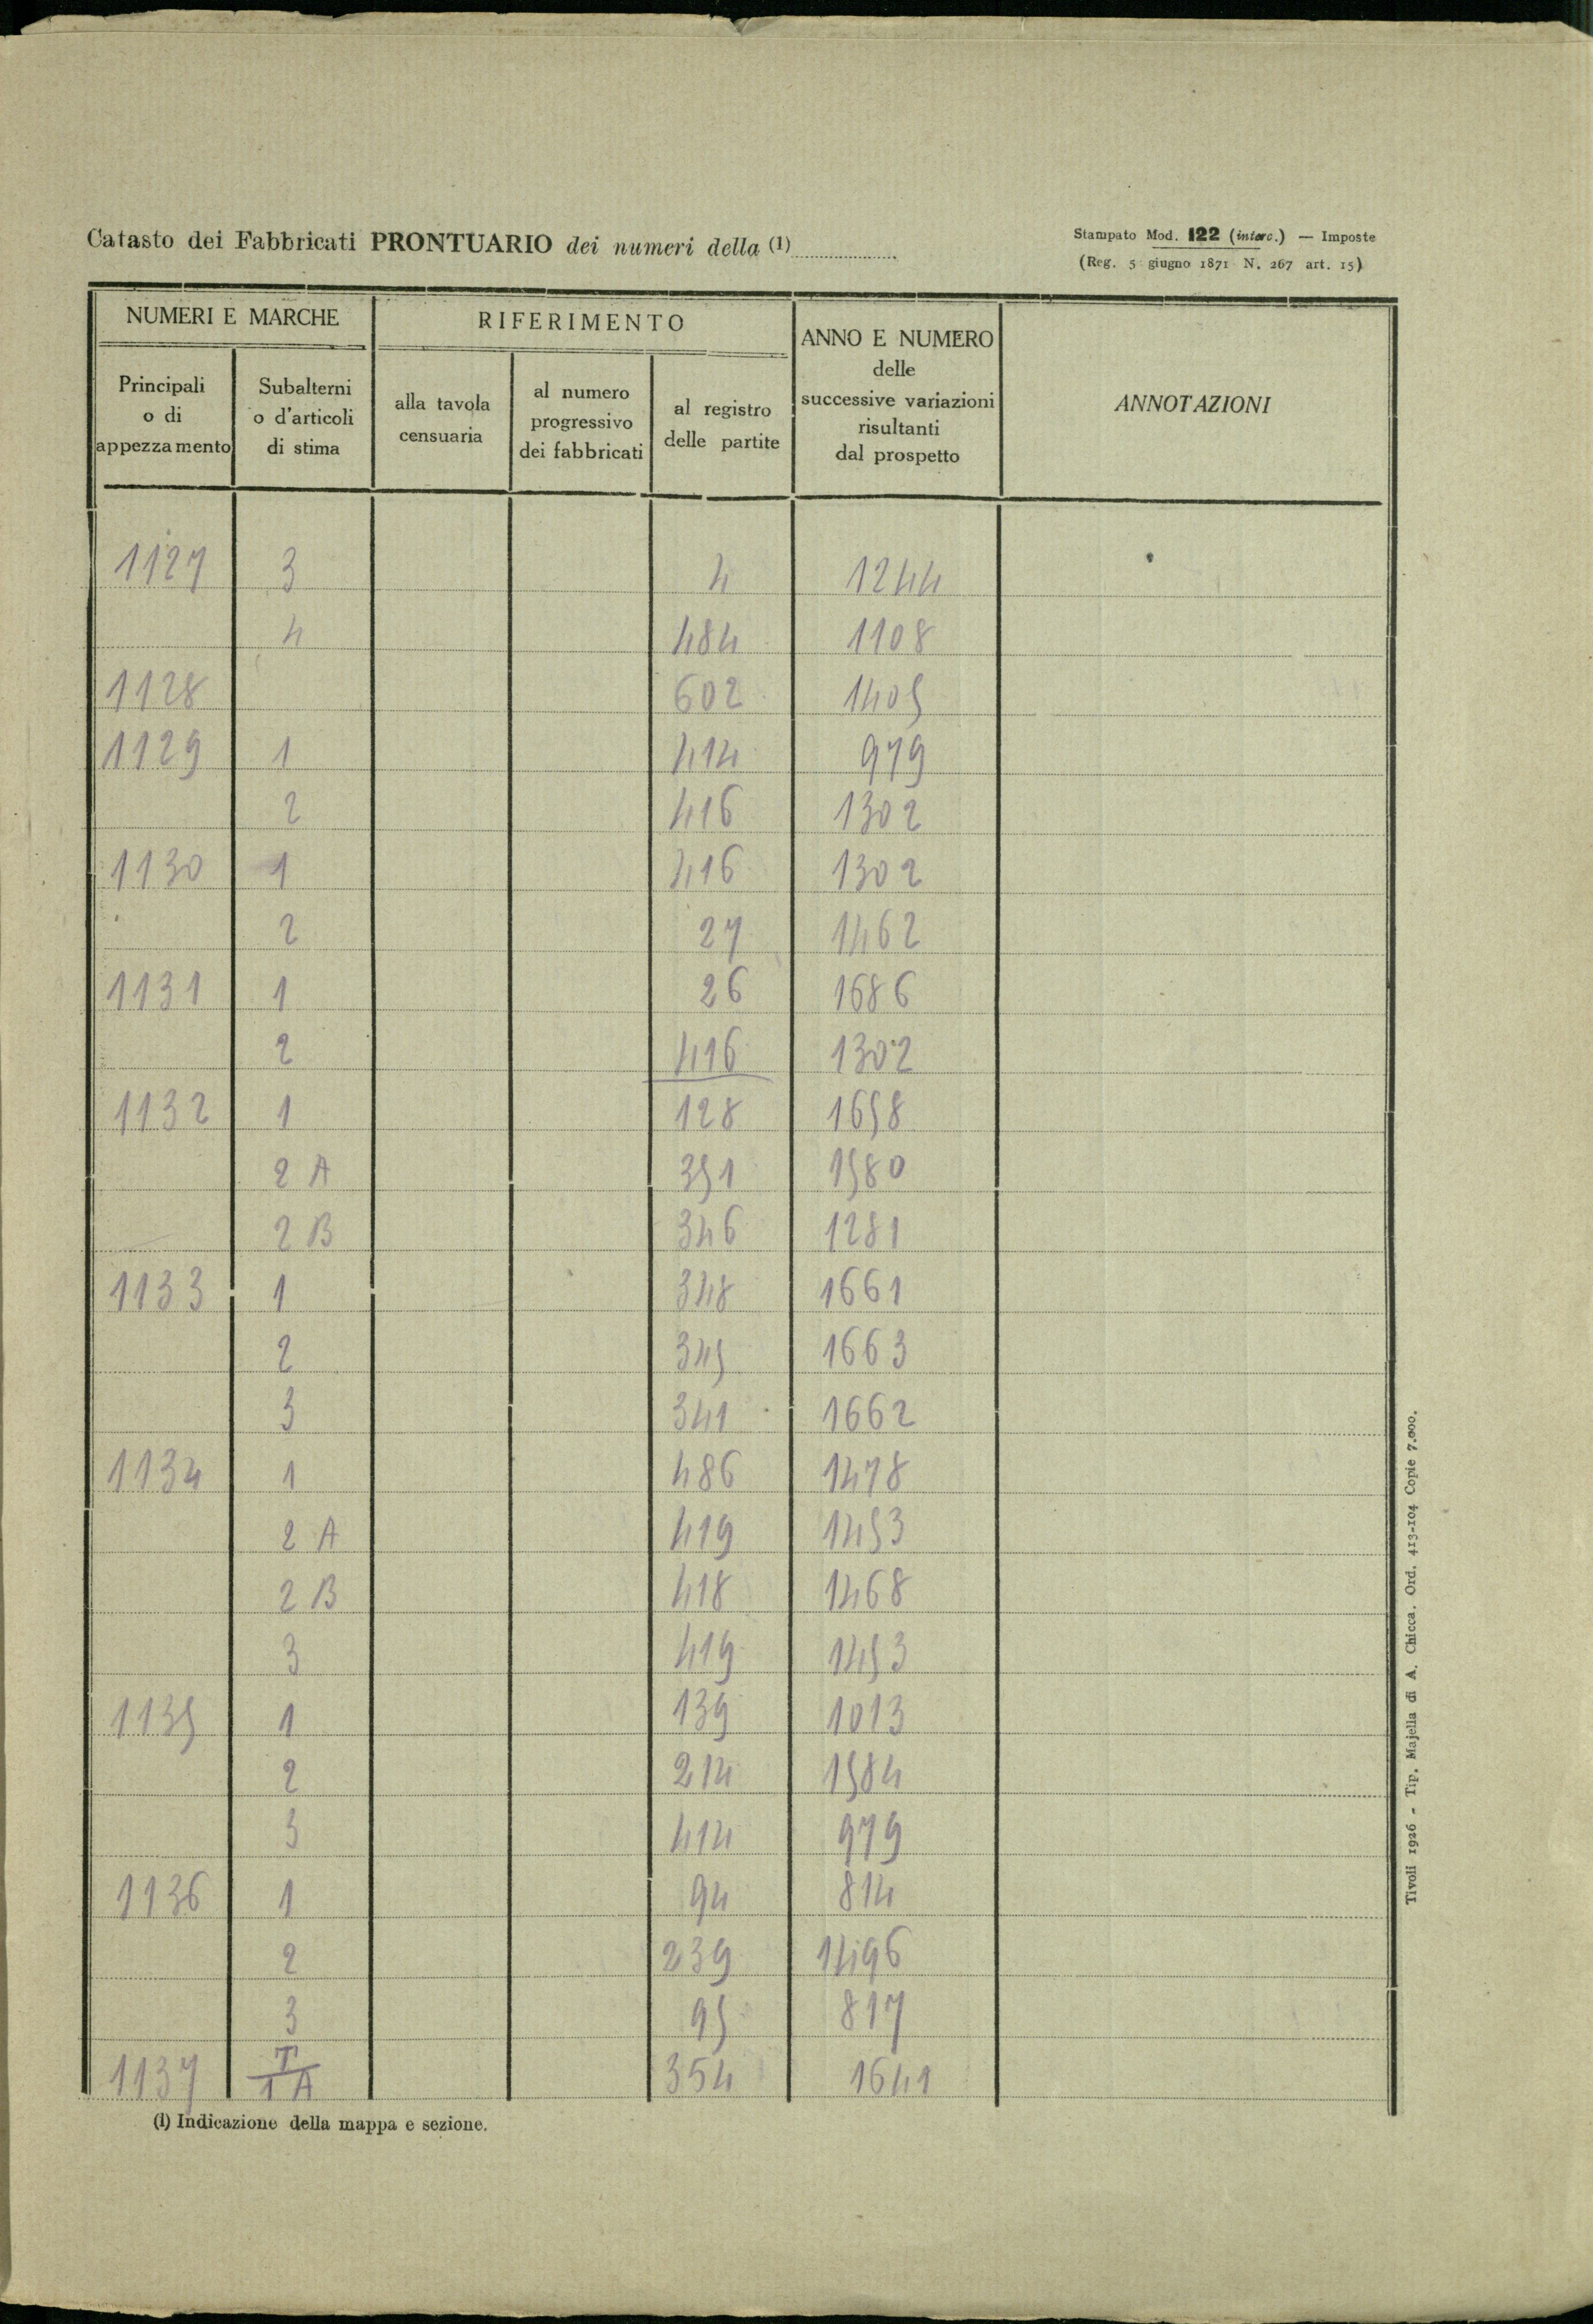 Catasto dei Fabbricati PRONTUARIO dei numeri della (1)
Stampato Mod. 122 (interc.) — Imposte
(Reg. 5 giugno 1871 N. 267 art. 15)
NUMERI E MARCHE
RIFERIMENTO
ANNO E NUMERO
delle
successive variazioni
risultanti
dal prospetto
ANNOTAZIONI
Principali
o di
appezzamento
Subalterni
o d'articoli
di stima
alla tavola
censuaria
al numero
progressivo
dei fabbricati
al registro
delle partite
1127 3 4 1244
4 484 1108
1128 602 1405
1129 1 414 979
2 416 1302
1130 1 416 1302
2 27 1462
1131 1 26 1686
2 416 1302
1132 1 128 1658
2 A 351 1580
2 B 346 1281
1133 1 348 1661
2 345 1663
3 341 1662
1134 1 486 1478
2 A 419 1453
2 B 418 1468
3 419 1453
1135 1 139 1013
2 214 1584
3 414 979
1136 1 94 814
2 239 1496
3 95 817
1137 T/1 A 354 1641
(1) Indicazione della mappa e sezione.
Tivoli 1926 - Tip. Majella di A. Chicca. Ord. 413-104 Copie 7.000.